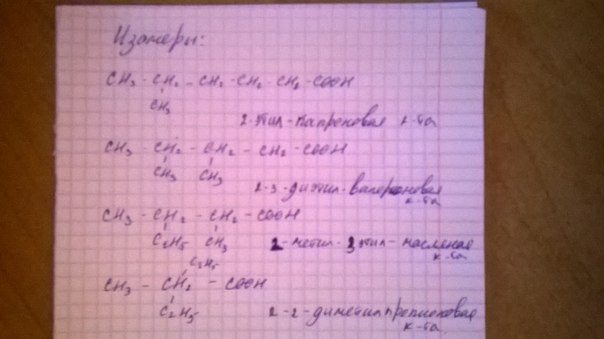 Изомеры:
CH3 - CH2 - CH2 - CH2 - CH2 - COOH
CH3
2-этил-капроновая к-та
CH3 - CH2 - CH2 - CH2 - COOH
CH3 CH3
2-3-диэтил-валероновая к-та
CH3 - CH2 - CH2 - COOH
C2H5 CH3
2-метил-3 этил-масляная к-та
C2H5
CH3 - CH2 - COOH
C2H5
2-2-диметилпропионовая к-та